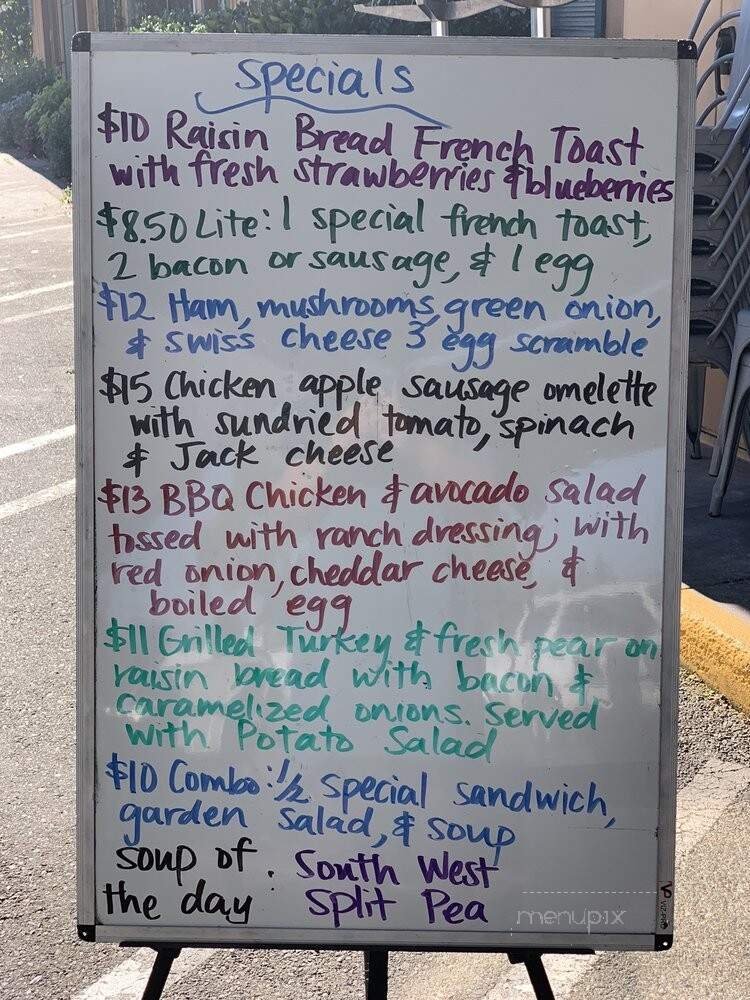 Specials
$10 Raisin Bread French Toast
with fresh strawberries & blueberries
$8.50 Lite: 1 special french toast,
2 bacon or sausage, & 1 egg
$12 Ham, mushrooms, green onion,
& swiss cheese 3 egg scramble
$15 Chicken apple sausage omelette
with sundried tomato, spinach
& Jack cheese
$13 BBQ Chicken & avocado salad
tossed with ranch dressing; with
red onion, cheddar cheese, &
boiled egg
$11 Grilled Turkey & fresh pear on
raisin bread with bacon &
caramelized onions. Served
with Potato Salad
$10 Combo: 1/2 special sandwich,
garden salad, & soup
soup of . South West
the day Split Pea
menupix
VIZ-PRO